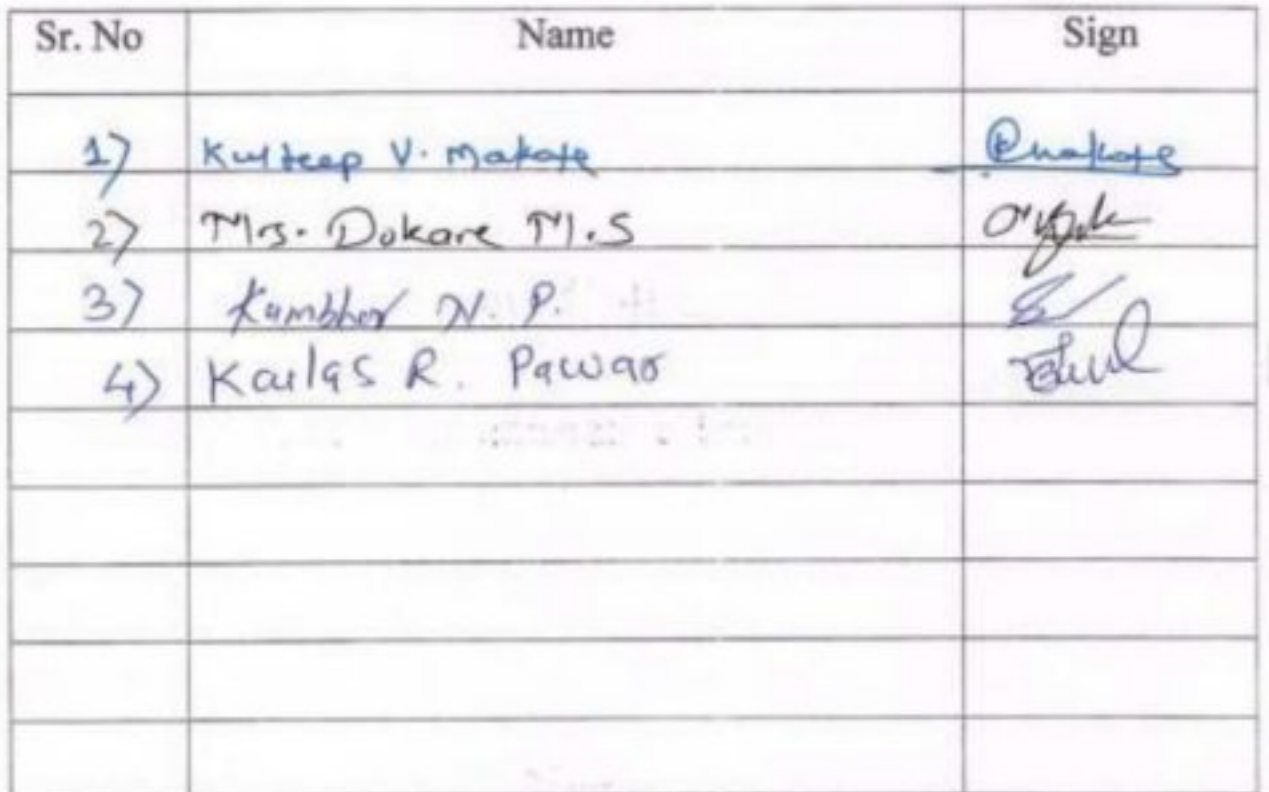 Sr. No Name Sign
1) Kuldeep V. Makate
2) Mrs. Dokare M.S
3) Kumbhar N. P.
4) Kailas R. Pawar